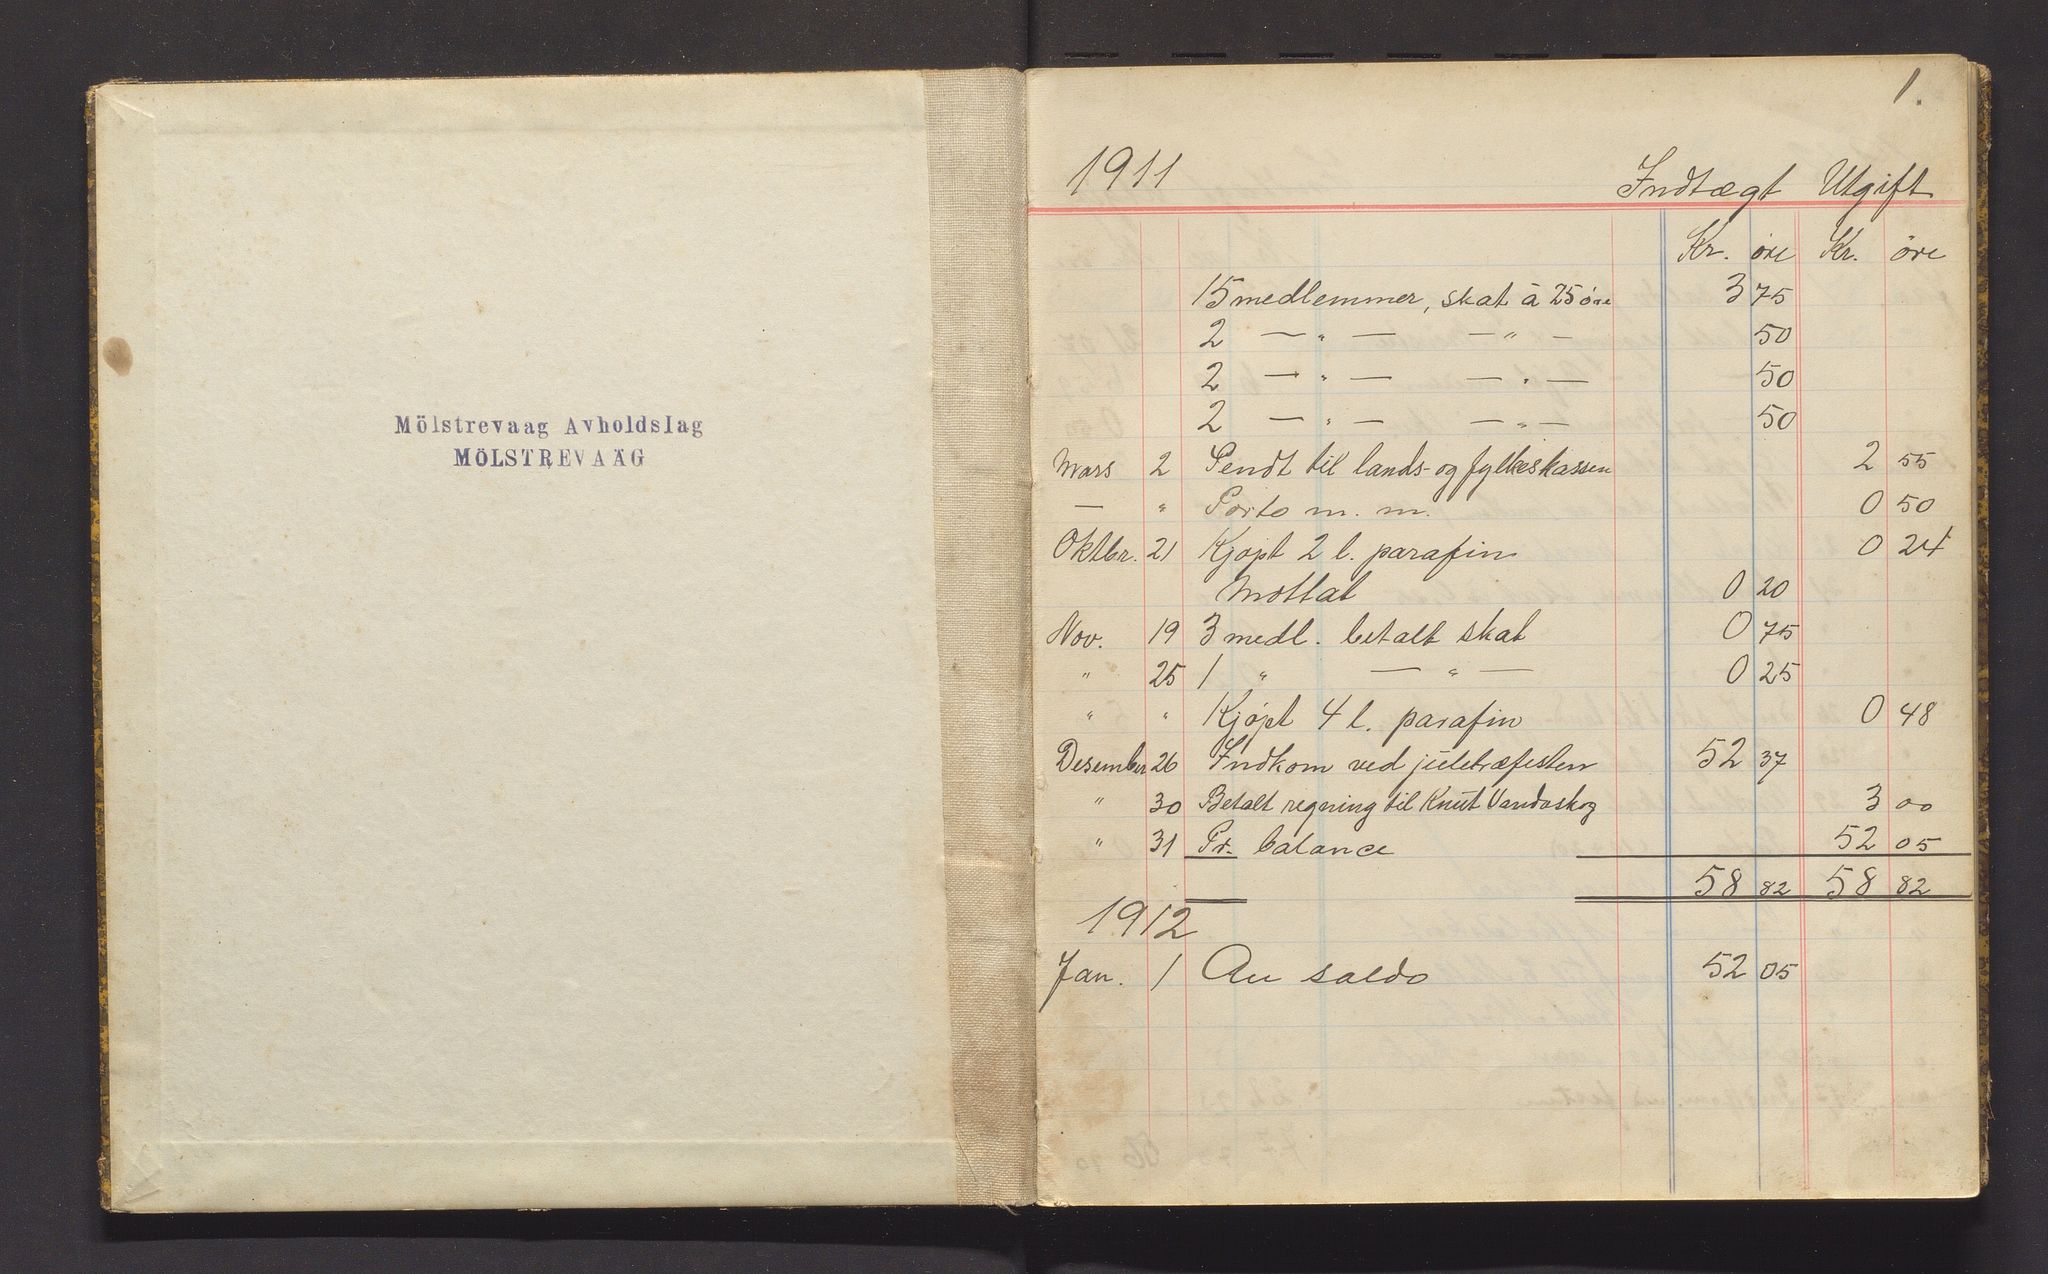 Mölstrevaag Avholdslag
MÖLSTREVAAG
1.
1911 Indtægt Utgift
Kr. øre Kr. øre
15 medlemmer, skat à 25 øre 3 75
2 — „ — — „ — 50
2 — „ — — „ — 50
2 — „ — — „ — 50
Mars 2 Sendt til lands- og fylkeskassen 2 55
— „ Porto m. m. 0 50
Oktbr. 21 Kjøpt 2 l. parafin 0 24
Mottat 0 20
Nov. 19 3 medl. betalt skat 0 75
„ 25 1 „ — „ — 0 25
„ „ Kjøpt 4 l. parafin 0 48
Desember 26 Indkom ved juletræfesten 52 37
„ 30 Betalt regning til Knut Vandaskog 3 00
„ 31 Pr. balance 52 05
58 82 58 82
1912
Jan. 1 An saldo 52 05